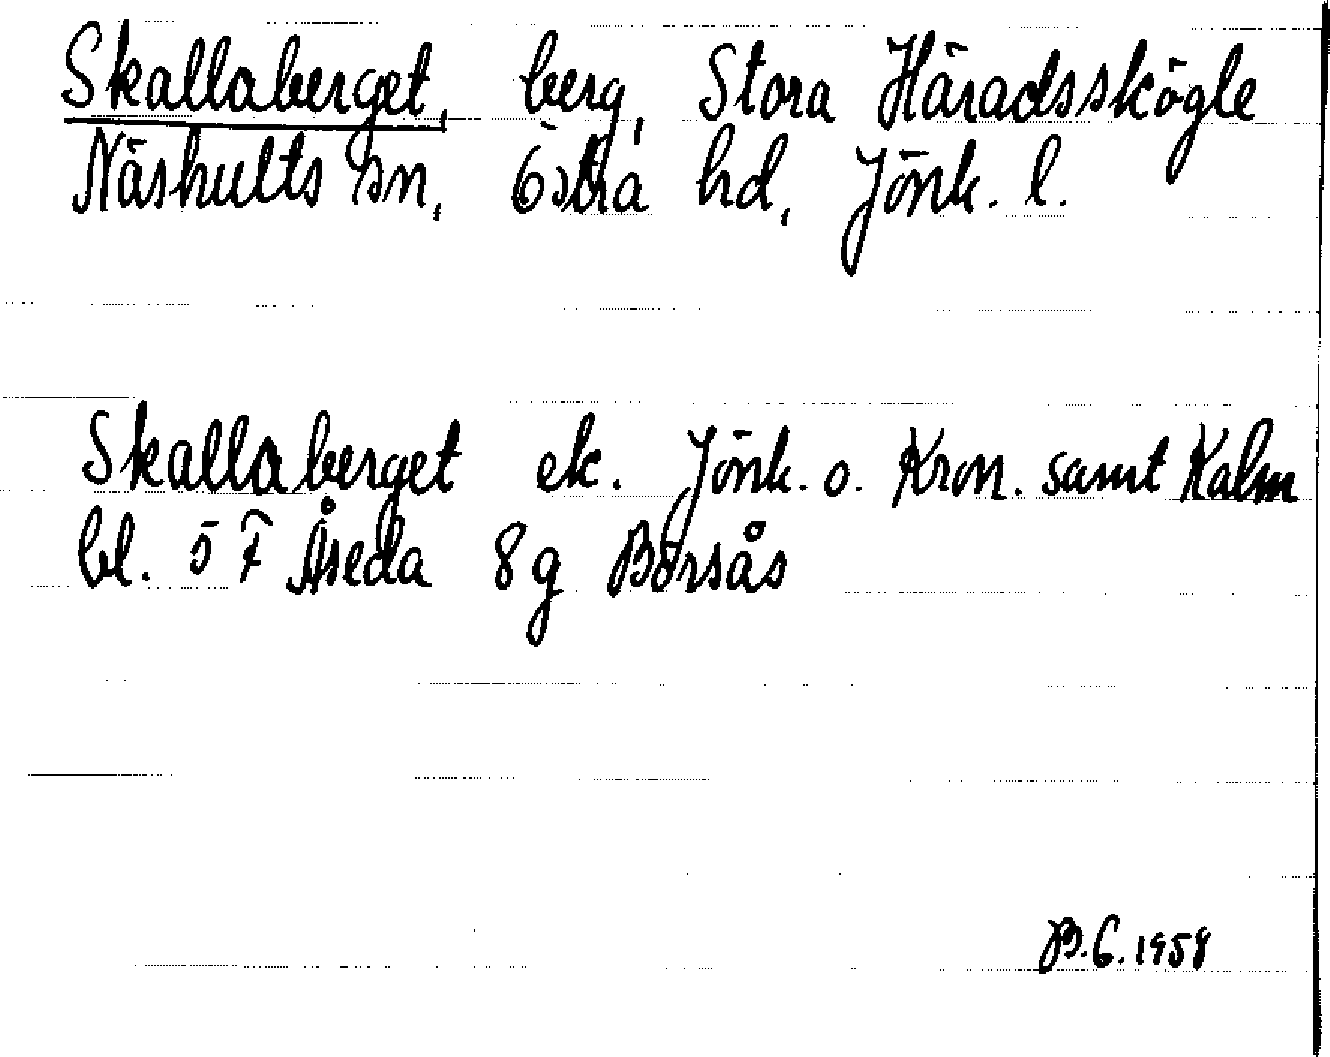 Skallaberget, berg, Stora Häradsskögle
Näshults sn, Östra hd, Jönk. l.
Skallaberget ek. Jönk. o. Kron. samt Kalm
bl. 5 F Åseda 8g Borsås
B.C. 1958